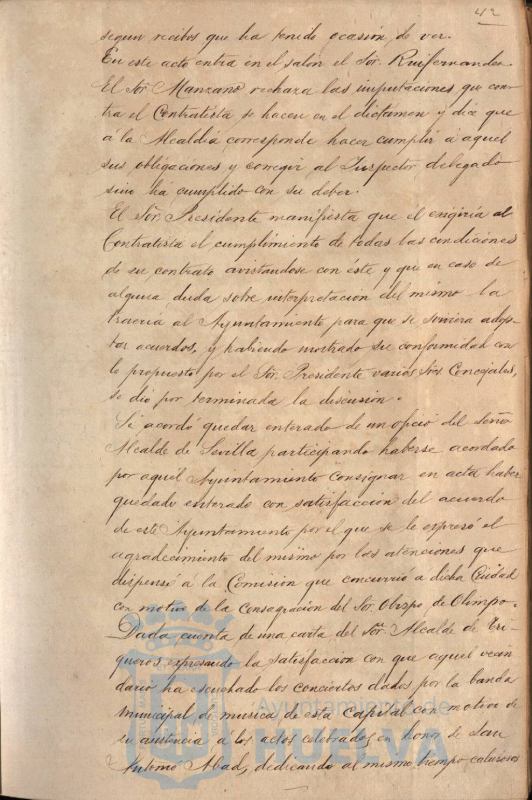 42
segun recibos que ha tenido ocasión de ver.
En este acto entra en el salon el Sor. Ruifernandez.
El Sor Manzano rechaza las imputaciones que con-
tra el Contratista se hacen en el dictamen y dice que
á la Alcaldia corresponde hacer cumplir á aquel
sus obligaciones y corregir al Inspector delegado
sino ha cumplido con su deber.
El Sor. Presidente manifiesta que el exigiria al
Contratista el cumplimiento de todas las condiciones
de su contrato avistandose con éste y que en caso de
alguna duda sobre interpretacion del mismo la
traeria al Ayuntamiento para que se sirviera adop-
tar acuerdos, y habiendo mostrado su conformidad con
lo propuesto por el Sor. Presidente varios Sres Concejales,
se dio por terminada la discusion.
Se acordó quedar enterado de un oficio del Señor
Alcalde de Sevilla participando haberse acordado
por aquel Ayuntamiento consignar en acta haber
quedado enterado con satisfaccion del acuerdo
de este Ayuntamiento por el que se le expresó el
agradecimiento del mismo por las atenciones que
dispensó á la Comision que concurrió a dicha Ciudad
con motivo de la Consagracion del Sor. Obispo de Olimpo.
Dada cuenta de una carta del Sor. Alcalde de Tri-
gueros, expresando la satisfaccion con que aquel vecin
dario ha escuchado los conciertos dados por la banda
municipal de musica de esta Capital con motivo de
su asistencia á los actos celebrados en honor de San
Antonio Abad, dedicando al mismo tiempo calurosos
Ayuntamiento de
HUELVA